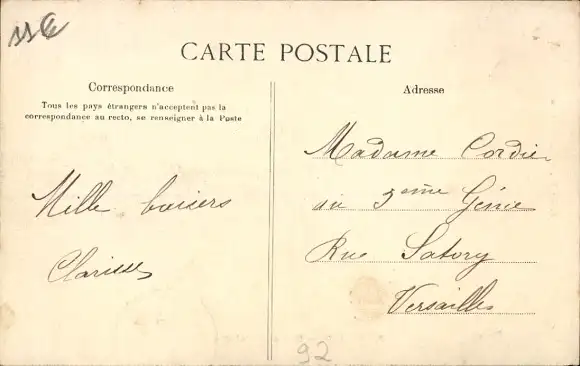 CARTE POSTALE
Correspondance
Tous les pays étrangers n'acceptent pas la
correspondance au recto, se renseigner à la Poste
Mille baisers
Clarisse
Adresse
Madame Cordier
au 3ème Génie
Rue Satory
Versailles
92